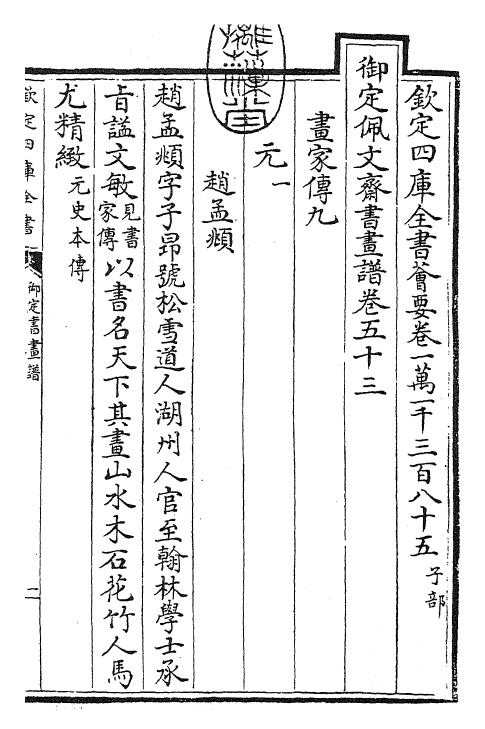 欽定四庫全書薈要卷一萬一千三百八十五 子部
御定佩文齋書畫譜卷五十三
畫家傳九
元一
趙孟頫
趙孟頫字子昂號松雪道人湖州人官至翰林學士承
旨謚文敏見書家傳以書名天下其畫山水木石花竹人馬
尤精緻元史本傳
欽定四庫全書
御定書畫譜
二